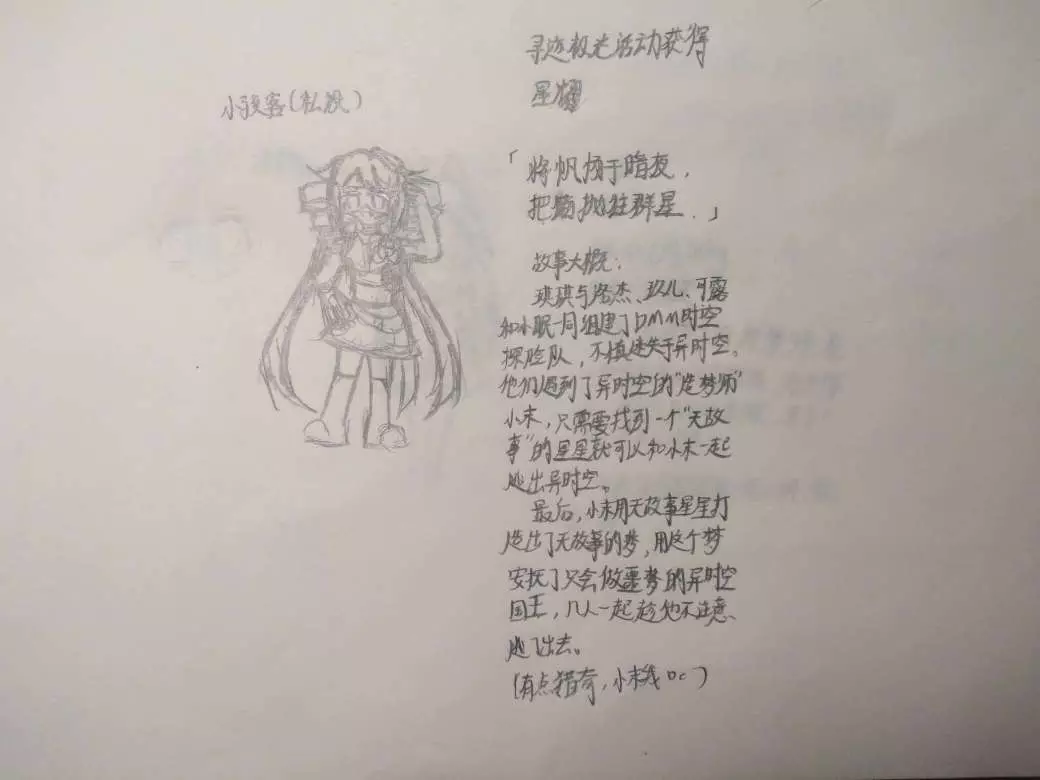 小孩客(私设)
寻迹极光活动获得
星耀
「将帆扬于暗夜,
把锚抛往群星.」
故事大概:
琪琪与洛杰、玖儿、可露
和小眠一同组建了DMM时空
探险队,不慎迷失于异时空。
他们遇到了异时空的"造梦师"
小末,只需要找到一个"无故
事"的星星就可以和小末一起
逃出异时空。
最后,小末用无故事星星打
造出了无故事的梦,用这个梦
安抚了只会做噩梦的异时空
国王,几人一起趁他不注意
逃了出去。
(有点猎奇,小末我oc)